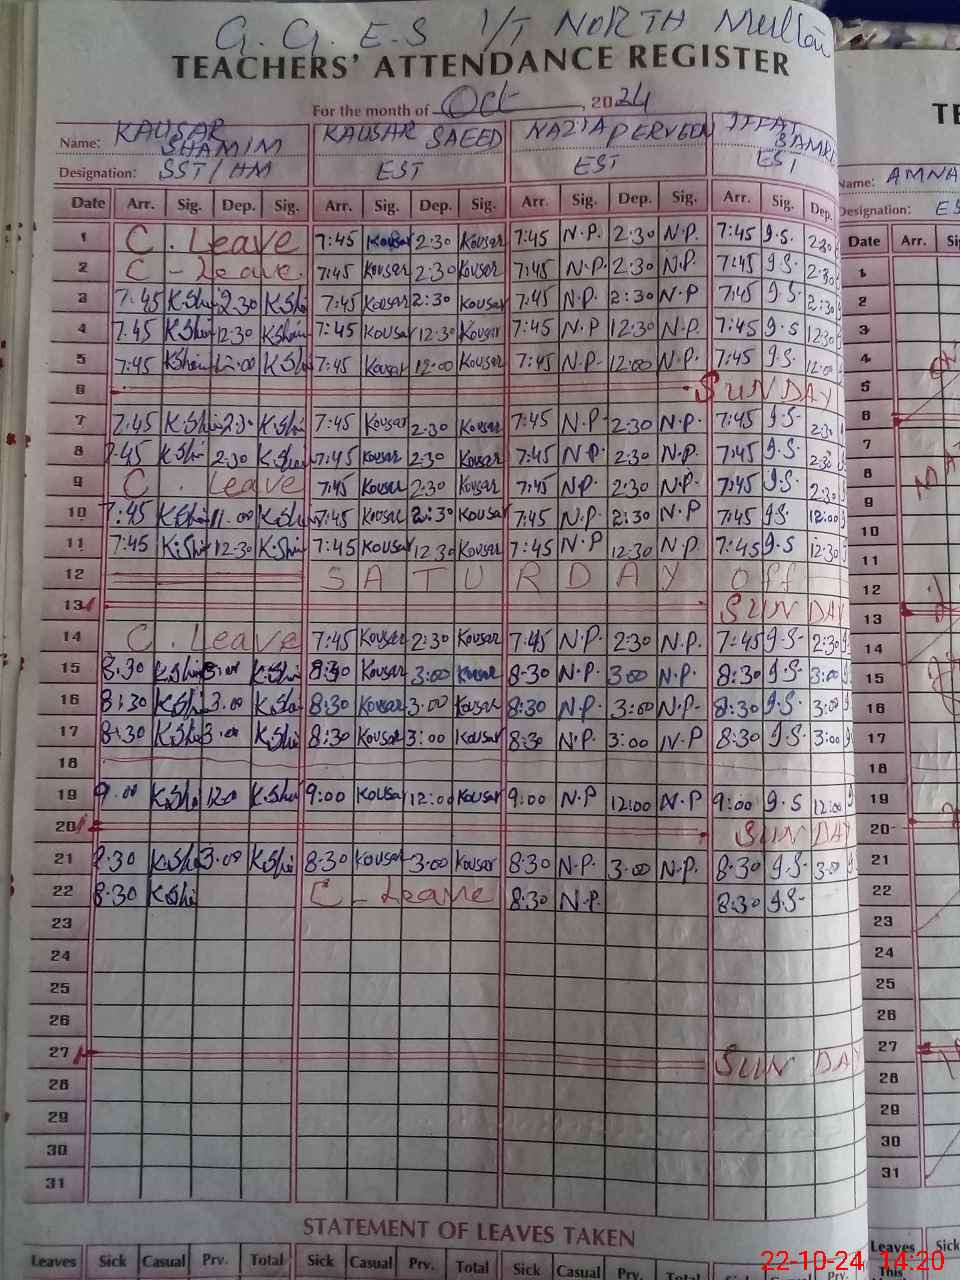 G. G. E. S 1/T NORTH Multan
TEACHERS' ATTENDANCE REGISTER
For the month of Oct, 2024
Name: KAUSAR SHAMIM KAUSAR SAEED NAZIA PERVEEN IFFAT
Designation: SST/HM EST EST EST
Date Arr. Sig. Dep. Sig. Arr. Sig. Dep. Sig. Arr. Sig. Dep. Sig. Arr. Sig. Dep.
1 C. Leave 7:45 Kousar 2:30 Kousar 7:45 N.P. 2:30 N.P. 7:45 9.S. 2:30
2 C - Leave. 7:45 Kousar 2:30 Kousar 7:45 N.P. 2:30 N.P. 7:45 9.S. 2:30
3 7:45 K.Shi 2:30 K.Shi 7:45 Kousar 2:30 Kousar 7:45 N.P. 2:30 N.P 7:45 9.S. 2:30
4 7:45 K.Shi 12:30 K.Shi 7:45 Kousar 12:30 Kousar 7:45 N.P 12:30 N.P. 7:45 9.S 12:30
5 7:45 K.Shi 12:00 K.Shi 7:45 Kousar 12:00 Kousar 7:45 N.P. 12:00 N.P. 7:45 9.S. 12:00
6 SUNDAY
7 7:45 K.Shi 2:30 K.Shi 7:45 Kousar 2:30 Kousar 7:45 N.P. 2:30 N.P. 7:45 9.S. 2:30
8 7:45 K.Shi 2:30 K.Shi 7:45 Kousar 2:30 Kousar 7:45 N.P. 2:30 N.P. 7:45 9.S. 2:30
9 C. Leave 7:45 Kousar 2:30 Kousar 7:45 N.P. 2:30 N.P. 7:45 9.S. 2:30
10 7:45 K.Shi 11:00 K.Shi 7:45 Kousar 2:30 Kousar 7:45 N.P. 2:30 N.P. 7:45 9.S. 12:00
11 7:45 K.Shi 12:30 K.Shi 7:45 Kousar 12:30 Kousar 7:45 N.P 12:30 N.P. 7:45 9.S 12:30
12 SATURDAY off
13 SUNDAY
14 C. Leave 7:45 Kousar 2:30 Kousar 7:45 N.P. 2:30 N.P. 7:45 9.S. 2:30
15 8:30 K.Shi 3:00 K.Shi 8:30 Kousar 3:00 Kousar 8:30 N.P. 3:00 N.P. 8:30 9.S. 3:00
16 8:30 K.Shi 3:00 K.Shi 8:30 Kousar 3:00 Kousar 8:30 N.P. 3:00 N.P. 8:30 9.S. 3:00
17 8:30 K.Shi 3:00 K.Shi 8:30 Kousar 3:00 Kousar 8:30 N.P. 3:00 N.P 8:30 9.S. 3:00
18
19 9:00 K.Shi K.Shi 9:00 Kousar 12:00 Kousar 9:00 N.P 12:00 N.P 9:00 9.S 12:00
20 SUNDAY
21 8:30 K.Shi 3:00 K.Shi 8:30 Kousar 3:00 Kousar 8:30 N.P. 3:00 N.P. 8:30 9.S. 3:00
22 8:30 K.Shi C - Leave 8:30 N.P. 8:30 9.S.
23
24
25
26
27 SUNDAY
28
29
30
31
STATEMENT OF LEAVES TAKEN
Leaves Sick Casual Prv. Total Sick Casual Prv. Total Sick Casual Prv.
Name: AMNA
Designation:
Date Arr.
1
2
3
4
5
6
7
8
9
10
11
12
13
14
15
16
17
18
19
20
21
22
23
24
25
26
27
28
29
30
31
Leaves Sick
This
22-10-24 14:20